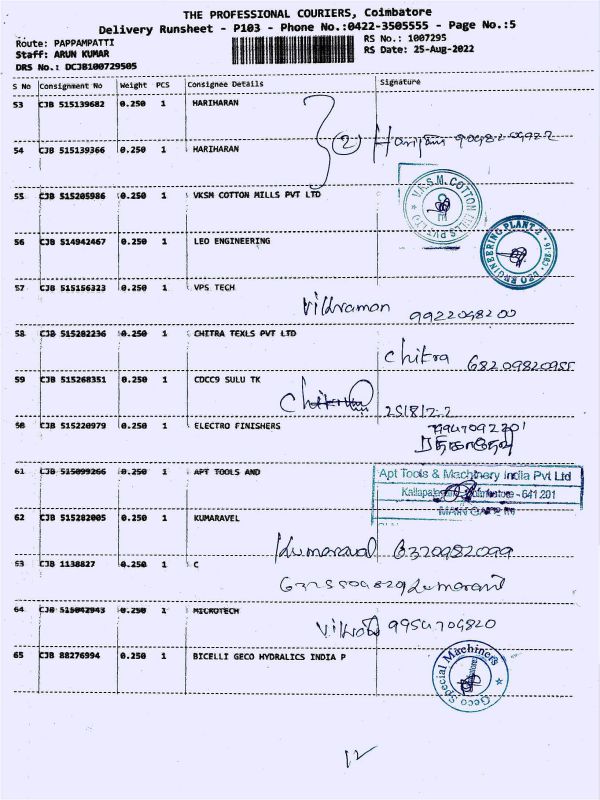 THE PROFESSIONAL COURIERS, Coimbatore
Delivery Runsheet - P103 - Phone No.:0422-3505555 - Page No.:5
Route: PAPPAMPATTI
RS No.: 1007295
Staff: ARUN KUMAR
RS Date: 25-Aug-2022
DRS No.: DCJB100729505
S No Consignment No Weight PCS Consignee Details Signature
53 CJB 515139682 0.250 1 HARIHARAN
2
54 CJB 515139366 0.250 1 HARIHARAN
55 CJB 515205986 0.250 1 VKSM COTTON MILLS PVT LTD
56 CJB 514942467 0.250 1 LEO ENGINEERING
LEO ENGINEERING PLANT-2
57 CJB 515156323 0.250 1 VPS TECH
9922098200
58 CJB 515282236 0.250 1 CHITRA TEXLS PVT LTD
Chitra 68209820955
59 CJB 515268351 0.250 1 CDCC9 SULU TK
25/8/22
CJB 515220979 0.250 1 ELECTRO FINISHERS
61 CJB 515099266 0.250 1 APT TOOLS AND
Apt Tools & Machinery India Pvt Ltd
- 641 201
MAIN GATE IN
62 CJB 515282005 0.250 1 KUMARAVEL
Kumaraval 6320982099
CJB 1138827 0.250 1 C
64 CJB 515042943 0.250 1 MICROTECH
65 CJB 88276994 0.250 1 BICELLI GECO HYDRALICS INDIA P
Geco Special Machiners
12